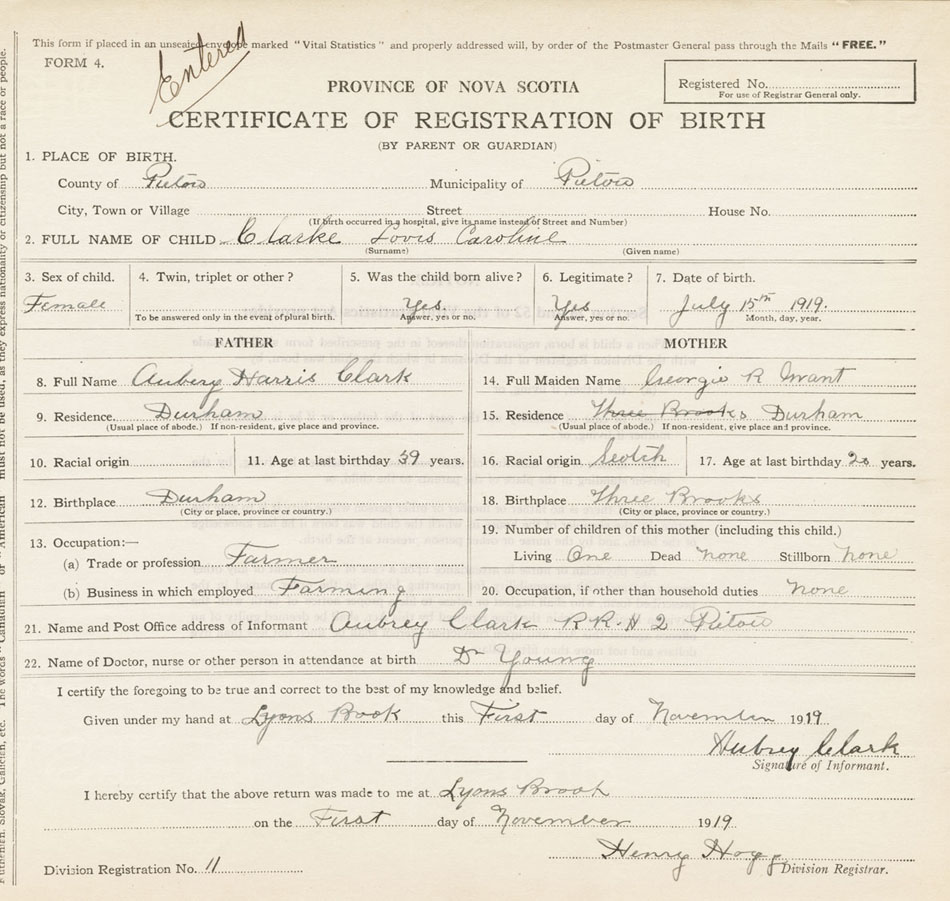 This form if placed in an unsealed envelope marked "Vital Statistics" and properly addressed will, by order of the Postmaster General pass through the Mails "FREE."
FORM 4.
Entered
Registered No.
For use of Registrar General only.
PROVINCE OF NOVA SCOTIA
CERTIFICATE OF REGISTRATION OF BIRTH
(BY PARENT OR GUARDIAN)
1. PLACE OF BIRTH.
County of Pictou Municipality of Pictou
City, Town or Village Street House No.
(If birth occurred in a hospital, give its name instead of Street and Number)
2. FULL NAME OF CHILD Clarke Lovis Caroline
(Surname) (Given name)
3. Sex of child. 4. Twin, triplet or other? 5. Was the child born alive? 6. Legitimate? 7. Date of birth.
Female Yes. Yes July 15th 1919.
To be answered only in the event of plural birth. Answer, yes or no. Answer, yes or no. Month, day, year.
FATHER MOTHER
8. Full Name Aubery Harris Clark 14. Full Maiden Name Georgie R
9. Residence Durham 15. Residence Three Brooks Durham
(Usual place of abode.) If non-resident, give place and province. (Usual place of abode.) If non-resident, give place and province.
10. Racial origin 11. Age at last birthday 39 years. 16. Racial origin Scotch 17. Age at last birthday 20 years.
12. Birthplace Durham 18. Birthplace Three Brooks
(City or place, province or country.) (City or place, province or country.)
13. Occupation:— 19. Number of children of this mother (including this child.)
(a) Trade or profession Farmer Living One Dead None Stillborn None
(b) Business in which employed Farming 20. Occupation, if other than household duties None
21. Name and Post Office address of Informant Aubrey Clark R R. N 2 Pictou
22. Name of Doctor, nurse or other person in attendance at birth Dr Young
I certify the foregoing to be true and correct to the best of my knowledge and belief.
Given under my hand at Lyons Brook this First day of November 1919
Aubrey Clark
Signature of Informant.
I hereby certify that the above return was made to me at Lyons Brook
on the First day of November 1919.
Henry Hogg
Division Registrar.
Division Registration No. 11